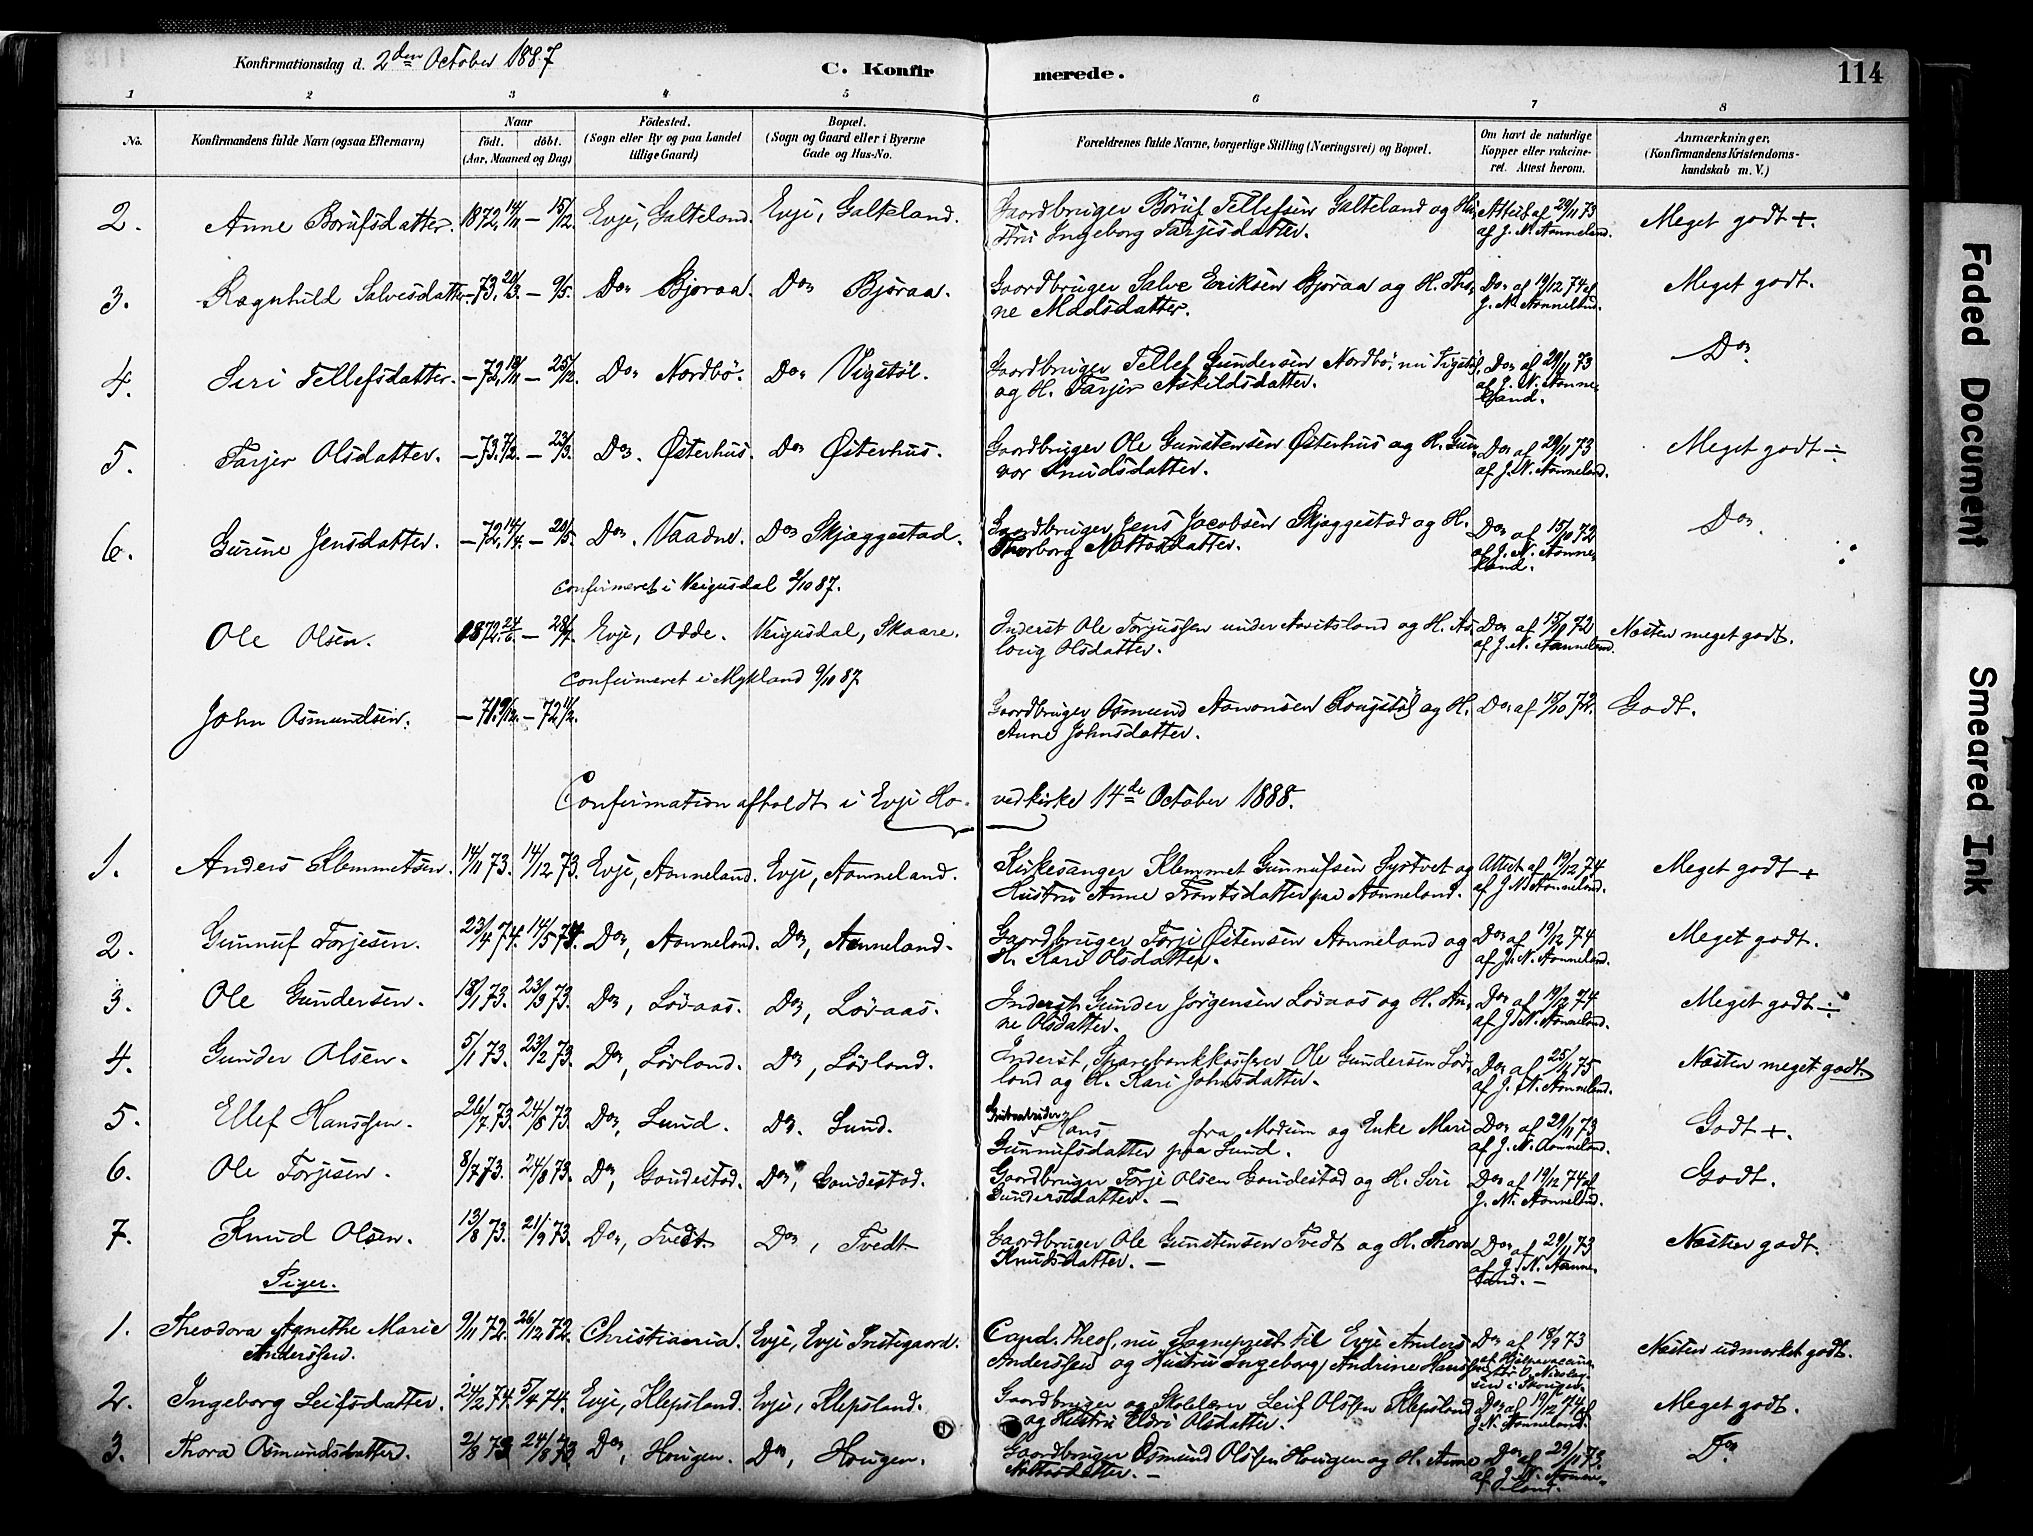 Konfirmationsdag d. 2den October 1887
C. Konfirmerede.
114
1 2 3 4 5 6 7 8
No.
Konfirmandens fulde Navn (ogsaa Efternavn)
Naar
födt. döbt.
(Aar, Maaned og Dag)
Födested.
(Sogn eller By og paa Landet
tillige Gaard)
Bopæl.
(Sogn og Gaard eller i Byerne
Gade og Hus-No.
Forældrenes fulde Navne, borgerlige Stilling (Næringsvei) og Bopæl.
Om havt de naturlige
Kopper eller vakcine-
ret. Attest herom.
Anmærkninger,
(Konfirmandens Kristendoms-
kundskab m. V.)
2. Anne Börufsdatter. 1872, 14/11 — 15/12. Evje, Galteland. Evje, Galteland. Gaardbruger Böruf Tellefsen Galteland og Hu- Attest af 29/11 73 Meget godt +.
stru Ingeborg Tarjesdatter. af J. N. Aanneland.
3. Ragnhild Salvesdatter — 73, 20/3. — 9/5. Do. Bjoraa. Do. Bjoraa. Gaardbruger Salve Eriksen Bjoraa og H. Tho- Do. af 19/12 74 af Meget godt.
ne Madsdatter. J. N. Aanneland.
4. Siri Tellefsdatter. — 72, 19/11 — 25/12. Do. Nordbö. Do. Vigstöl. Gaardbruger Tellef Gundersen Nordbö, nu Vigstöl, Do. af 29/11 73 Do.
og H. Tarjer Askildsdatter. af J. N. Aanne-
land.
5. Tarjer Olsdatter. — 73. 7/2. — 23/3. Do. Østerhus. Do. Østerhus. Gaardbruger Ole Gunstensen Østerhus og H. Gun- Do. af 29/11 73 Meget godt ÷
vor Knudsdatter. af J. N. Aanneland.
6. Gurine Jensdatter. — 72, 14/4. — 20/5. Do. Vaadne. Do. Skjæggestad. Gaardbruger Jens Jacobsen Skjæggestad og H. Do. af 15/10 72 Do.
Thorborg Nottosdatter. af J. N. Aanne-
land.
confirmeret i Veigusdal 2/10 87.
Ole Olsen. 1872. 24/6. — 28/7. Evje, Odde. Veigusdal, Skaare. Inderst Ole Torjussen under Aavitsland og H. As- Do. af 15/10 72 Næsten meget godt.
loug Olsdatter. af J. N. Aanneland.
confirmeret i Mykland 9/10 87
John Osmundsen. — 71. 9/12. — 72 11/2. Gaardbruger Osmund Aanonsen Rougstöl og H. Do. af 15/10 72. Godt.
Anne Johnsdatter.
Confirmation afholdt i Evje Hovedkirke 14de October 1888.
1. Anders Klemmetsen. 14/11 73. 14/12 73. Evje, Aanneland. Evje, Aanneland. Kirkesanger Klemmet Gunnufsen Syrtvet og Attest af 19/12 74 Meget godt +
Hustru Anne Trontsdatter paa Aanneland. af J. N. Aanneland.
2. Gunnuf Torjesen. 23/4 74. 14/5 74. Do, Aanneland. Do, Aanneland. Gaardbruger Torje Östensen Aanneland og Do. af 19/12 74 Meget godt.
H. Kari Olsdatter. af J. N. Aanneland.
3. Ole Gundersen. 18/1 73. 23/3 73. Do, Lövaas. Do, Lövaas. Inderst Gunder Jörgensen Lövaas og H. An- Do. af 19/12 74 Meget godt ÷
ne Olsdatter. af J. N. Aanneland.
4. Gunder Olsen. 5/1 73. 23/2 73. Do, Lövland. Do, Lövland. Inderst, Sparebankkasserer Ole Gundersen Löv- Do. af 25/11 75 Næsten meget godt.
land og H. Kari Johnsdatter. af J. N. Aanneland.
5. Ellef Hanssen. 26/7 73. 24/8 73. Do, Lund. Do. Lund. Grubearbeider Hans fra Modum og Enke Mari Do. af 29/11 73 Godt +.
Gunnufsdatter paa Lund. af J. N. Aanneland.
6. Ole Torjesen. 8/7 73. 24/8 73. Do, Gaudestad. Do, Gaudestad. Gaardbruger Torje Olsen Gaudestad og H. Siri Do. af 19/12 74 af Godt.
Gundersdatter. — J. N. Aanneland.
7. Knud Olsen. 13/8 73. 21/9 73. Do, Tvedt. Do, Tvedt Gaardbruger Ole Gunstensen Tvedt og H. Thora Do. af 29/11 73 Næsten godt.
Knudsdatter. — af J. N. Aanne-
land. —
Piger.
1. Theodora Agnethe Marie 9/11 72. 26/12 72. Christiania. Evje, Evje Prestegaard. Cand. theol, nu Sognepræst til Evje Anders Do. af 18/9 73 Næsten udmærket godt.
Anderssen. Anderssen og Hustru Ingeborg Andrine Hanssen
2. Ingeborg Leifsdatter. 24/2 74. 5/4 74. Evje, Klepsland. Evje, Klepsland. Gaardbruger og Skolelærer Leif Olssen Klepsland Do. af 19/12 74 af Meget godt.
og Hustru Eldri Olsdatter. J. N. Aanneland.
3. Thora Osmundsdatter. 2/8 73 24/8 73. Do, Hougen. Do, Hougen. Gaardbruger Osmund Olssen Hougen og H. Anne Do. af 29/11 73. Do.
Nottosdatter. — af J. N. Aanne-
land.
Faded Document
Smeared Ink